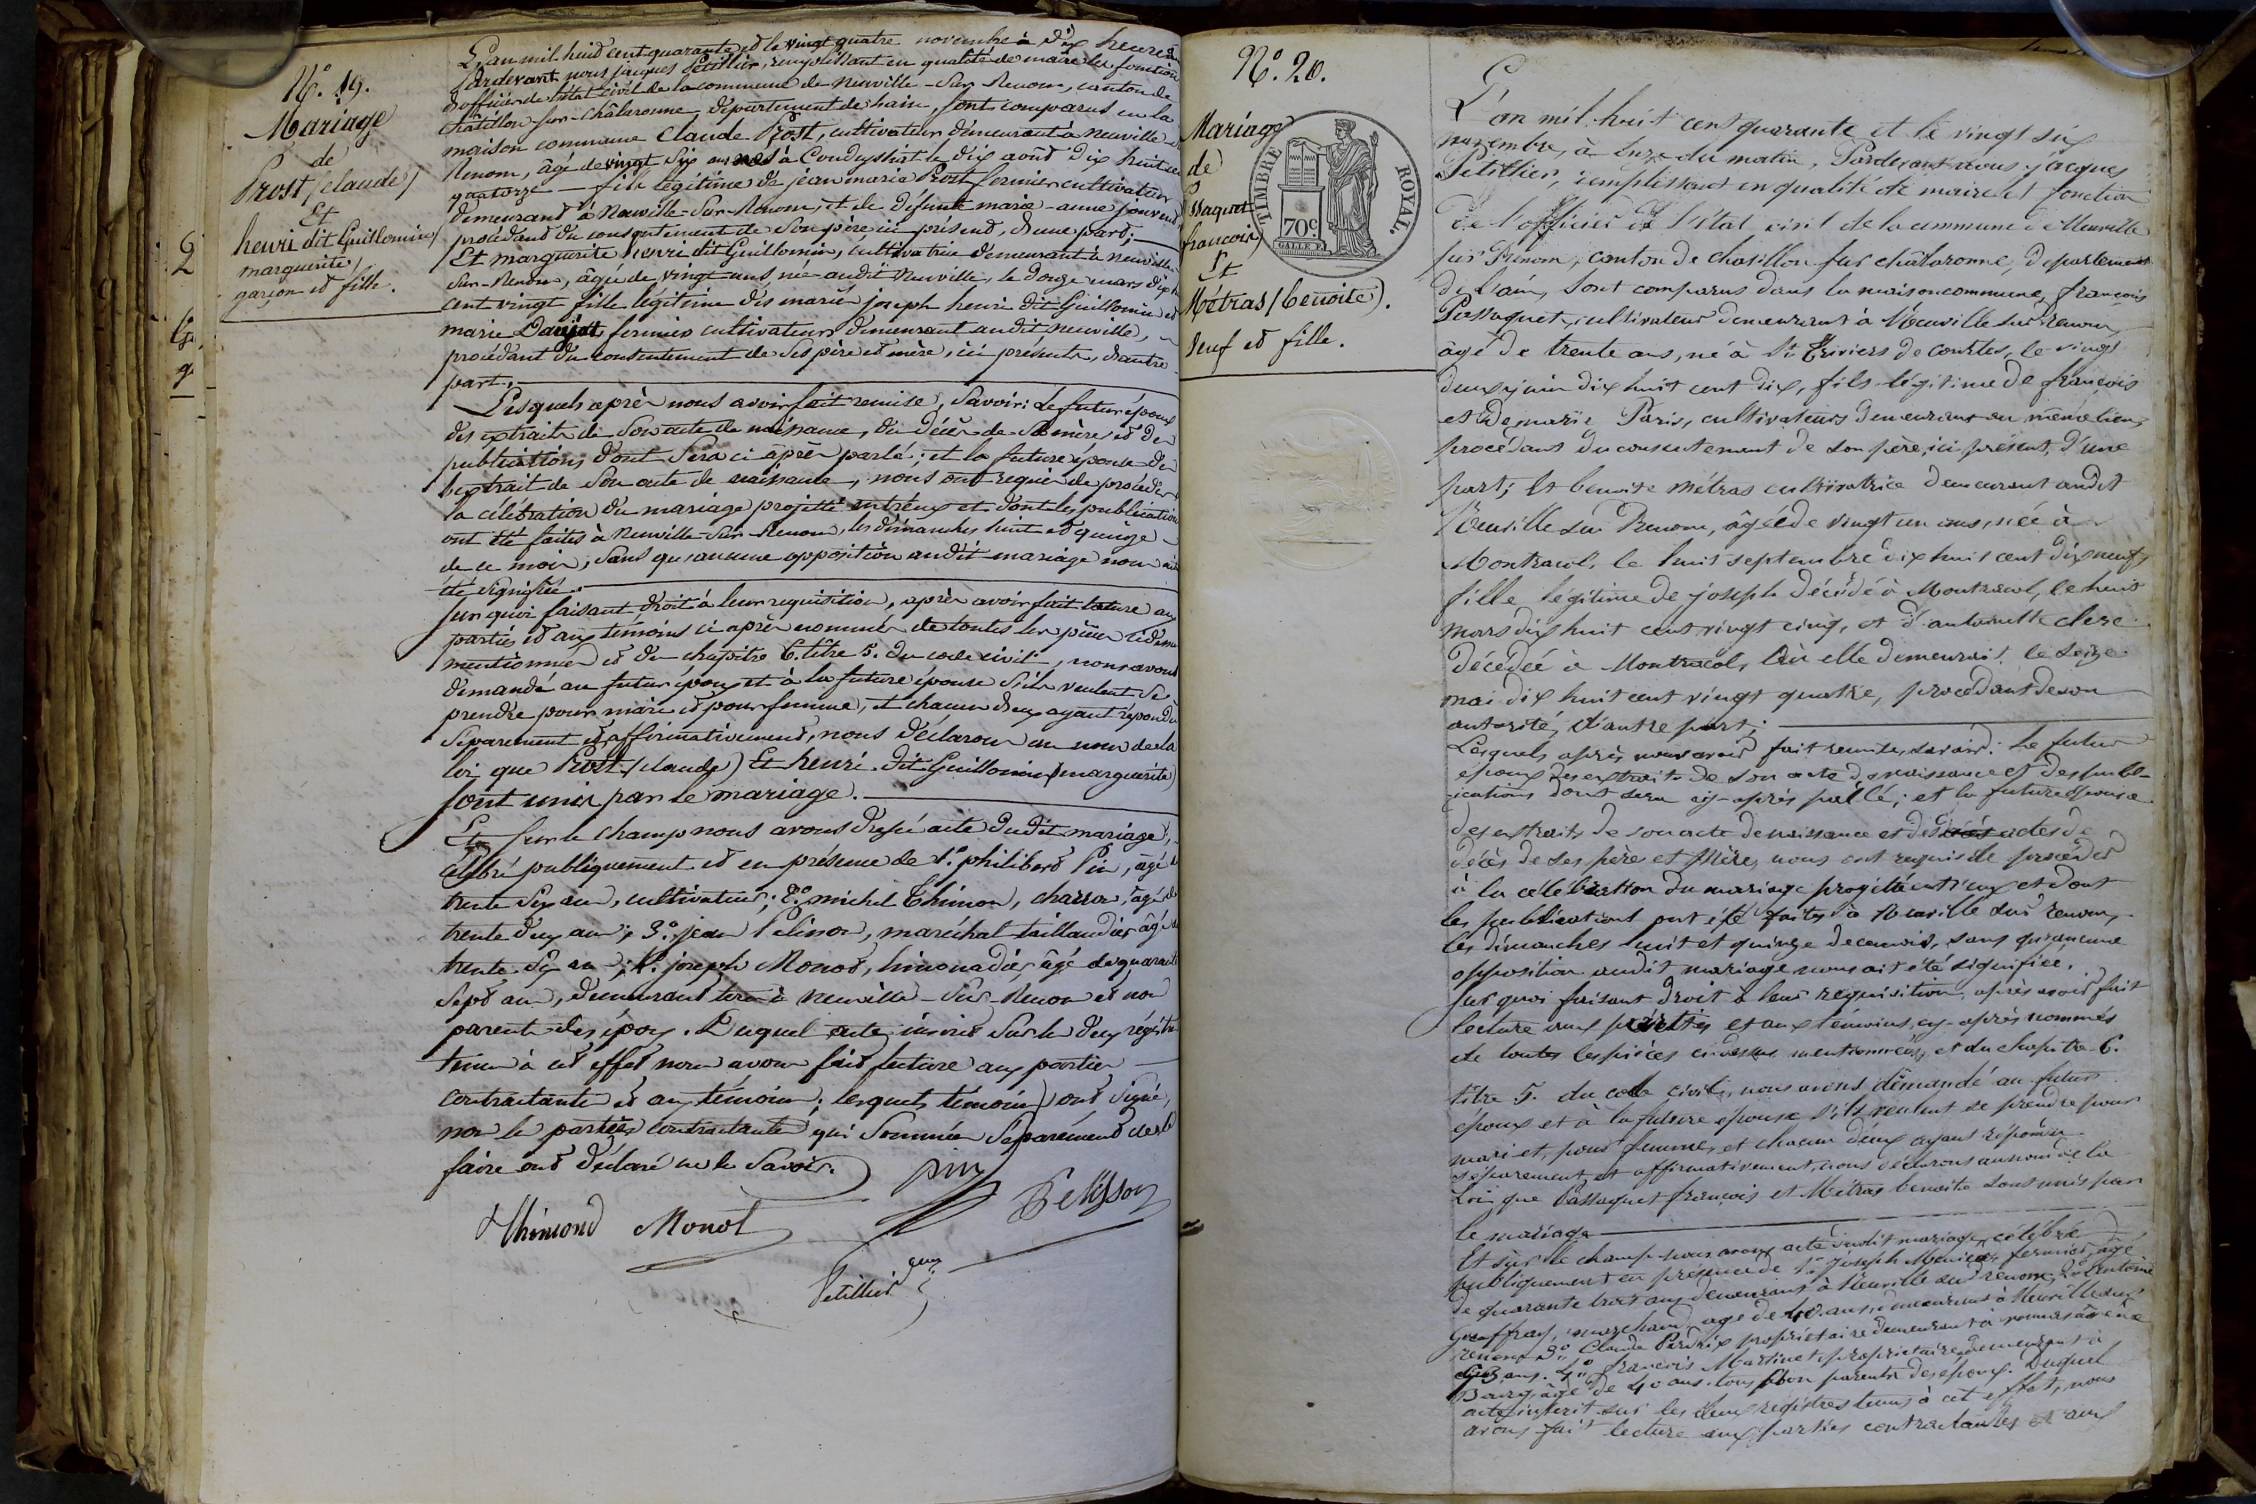 N.º 19.
Mariage
de
Prost (claude)
Et
henri dit Guillomin
marguerite,
garçon et fille.
L'an mil huit cent quarante et le vingt quatre novembre à dix heures
Pardevant nous jacques Petillier, remplissant en qualité de maire les fonctions
d'officier de l'état civil de la commune de Neuville-Sur-Renom, canton de
châtillon-sur-châlaronne, département de l'ain, sont comparus en la
maison commune Claude Prost, cultivateur demeurant à Neuville-
Renom, âgé de vingt six ans né à Condeyssiat le dix août dix huit cent
quatorze — fils légitime de jean marie Prost fermier cultivateur
demeurant à Neuville-Sur-Renom, et de défunte marie-anne
procédant du consentement de son père ici présent, d'une part;
Et marguerite henri dit Guillomin, cultivatrice demeurant à neuville
Sur-Renom, âgée de vingt ans née audit Neuville, le douze mars dix h
cent vingt fille légitime des mariés joseph henri dit Guillomin et
marie fermiers cultivateurs demeurant audit neuville,
procédant du consentement de ses père et mère, ici présents, d'autre
part.
Lesquels après nous avoir fait remise, Savoir: Le futur époux
des extraits de son acte de naissance, du décès de Sa mère et des
publications dont Sera ci après parlé; et la future épouse de
l'extrait de Son acte de naissance, nous ont requis de procéder à
la célébration du mariage projetté entr'eux et dont les publications
ont été faites à Neuville-Sur-Renom, les dimanches huit et quinze
de ce mois, Sans qu'aucune opposition audit mariage nous ait
été signifiée.
Sur quoi faisant droit à leur requisition, après avoir fait lecture aux
parties et aux témoins ci après nommés de toutes les pièces ci dessus
mentionnées et du chapitre 6. titre 5. du code civil, nous avons
demandé au futur époux et à la future épouse s'ils veulent se
prendre pour mari et pour femme, et chacun d'eux ayant répondu
séparement et affirmativement, nous déclarons au nom de la
loi que Prost (claude) Et henri dit Guillomin (marguerite)
sont unis par le mariage.
Et sur le champ nous avons dressé acte dudit mariage,
célébré publiquement et en présence de 1.º philibert Pin, âgé de
trente six ans, cultivateur; 2.º michel Thimon, charron, âgé de
trente deux ans; 3.º jean Pelisson, maréchal taillandier âgé de
trente six ans; 4.º joseph Monod, limonadier, âgé de quarante
sept ans, demeurant tous à neuville-Sur-Renom et non
parents des époux. Duquel acte inscrit sur les deux régistres
tenus à cet effet nous avons fait lecture aux parties
contractantes et aux témoins; lesquels témoins ont signé,
non les parties contractantes qui Sommées Séparément de le
faire ont déclaré ne le Savoir.
pin
Thimond Monot Pelisson
Petillier
N.º 20.
Mariage
de
Passaquet
françois,
Et
Métras (benoite).
Veuf et fille.
TIMBRE ROYAL.
70c
L'an mil huit cent quarante et le vingt six
novembre, à onze du matin, Pardevant nous jacques
Petillier, remplissant en qualité de maire les fonction
de l'officier de l'état civil de la commune de Neuville
sur Renom, canton de chatillon sur châlaronne, departement
de l'ain, sont comparus dans la maison commune, françois
Passaquet, cultivateur demeurant à Neuville sur renom,
âgé de trente ans, né à St. Triviers de courtes, le vingt
deux juin dix huit cent dix, fils légitime de françois
et de marie Paris, cultivateurs demeurant au même lieu,
procédant du consentement de son père, ici présent, d'une
part; Et benoite métras cultivatrice demeurant audit
Neuville sur Renom, âgée de vingt un ans, née à
Montracol, le huit septembre dix huit cent dix neuf,
fille légitime de joseph décédé à Montracol, le huit
mars dix huit cent vingt cinq, et d'antoinette clerc
décédée à Montracol, où elle demeurait, le seize
mai dix huit cent vingt quatre, procédant de son
autorité, d'autre part;
Lesquels après nous avoir fait remise, savoir: Le futur
époux des extraits de son acte de naissance et des publi-
ications dont sera cy-après parlé; et la future épouse
des extraits de son acte de naissance et des actes de
décès de ses père et Mère, nous ont requis de procéder
à la célébration du mariage projetté entr'eux et dont
les publications ont été faites à Neuville sur renom,
les dimanches huit et quinze de ce mois, sans qu'aucune
opposition audit mariage nous ait été signifiée.
Sur quoi faisant droit à leur requisition, après avoir fait
lecture aux parties et aux témoins, cy-après nommés
de toutes les pièces ci dessus mentionnées, et du chapitre 6.
titre 5. du code civil, nous avons demandé au futur
époux et à la future épouse s'ils veulent se prendre pour
mari et pour femme, et chacun d'eux ayant répondu
séparement et affirmativement, nous déclarons au nom de la
Loi que Passaquet françois et Métras benoite sont unis par
le mariage
Et sur le champ nous avons acte dudit mariage célébré
publiquement en présence de 1º. Joseph fermier, âgé
de quarante trois ans demeurant à Neuville sur renom, 2º. antoine
Geoffray, marchand, age de 40 ans, demeurant à Neuville sur
renom 3º. Claude Perdrix propriétaire demeurant à
ans. 4º. françois Martinet, propriétaire, demeurant à
Bourg âgé de 40 ans. tous non parents des epoux. Duquel
acte inscrit sur les deux registres tenus à cet effet, nous
avons fait lecture aux parties contractantes et aux